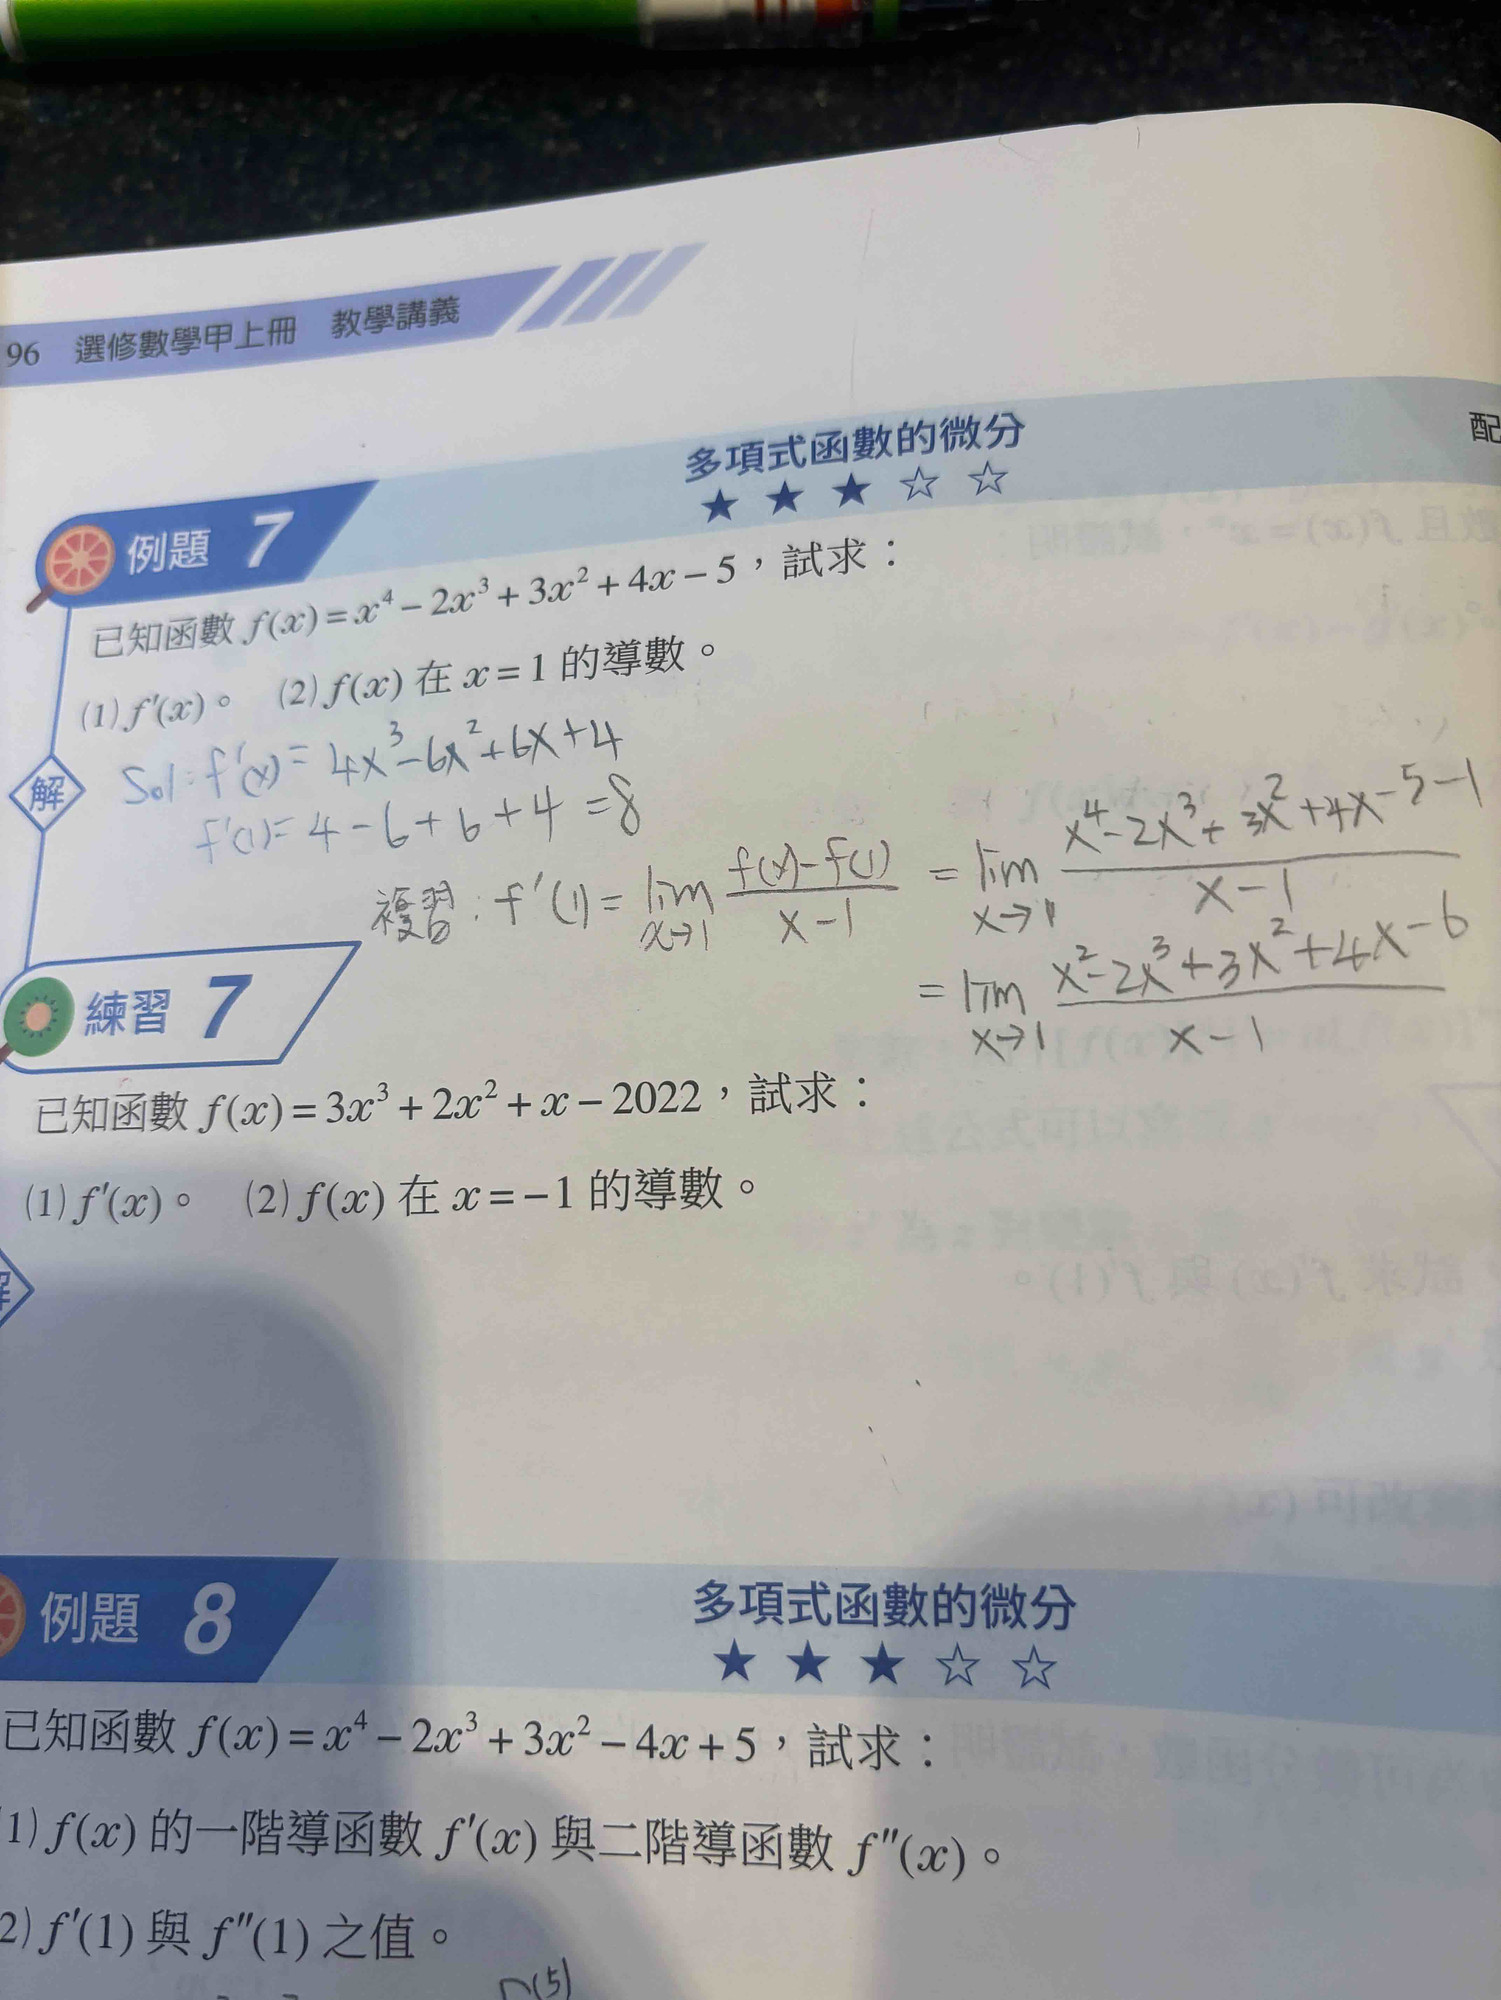 96 選修數學甲上冊 教學講義
配
多項式函數的微分
★★★☆☆
例題 7
已知函數 f(x)=x⁴−2x³+3x²+4x−5，試求：
(1) f′(x)。 (2) f(x) 在 x=1 的導數。
解
Sol: f′(x)= 4x³−6x²+6x+4
f′(1)= 4−6+6+4 =8
複習: f′(1)= lim x→1 f(x)−f(1) / x−1 = lim x→1 x⁴−2x³+3x²+4x−5−1 / x−1
= lim x→1 x²−2x³+3x²+4x−6 / x−1
練習 7
已知函數 f(x)=3x³+2x²+x−2022，試求：
(1) f′(x)。 (2) f(x) 在 x=−1 的導數。
解
例題 8
多項式函數的微分
★★★☆☆
已知函數 f(x)=x⁴−2x³+3x²−4x+5，試求：
1) f(x) 的一階導函數 f′(x) 與二階導函數 f″(x)。
2) f′(1) 與 f″(1) 之值。